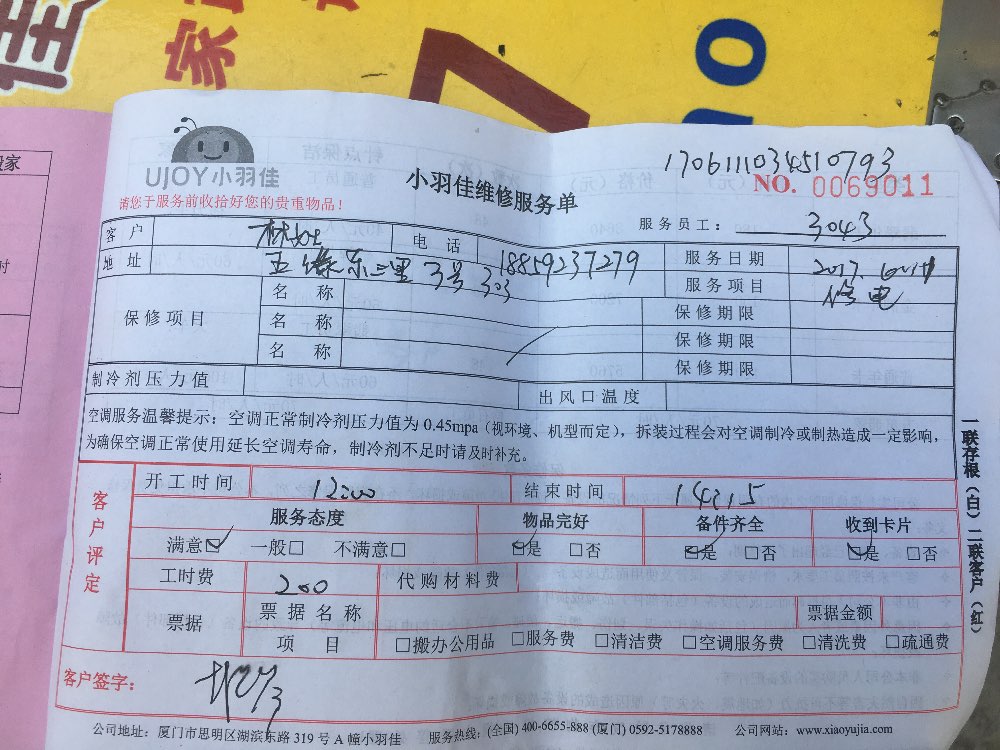 家
170611103451079​3
UJOY小羽佳
小羽佳维修服务单
NO. 0069011
请您于服务前收拾好您的贵重物品！
服务员工： 3043
客户 林女士 电话 18859237279 服务日期 2017.
地址 五缘东三里3号303 服务项目 修电
保修项目 名称 保修期限
名称 保修期限
名称 保修期限
制冷剂压力值 出风口温度
空调服务温馨提示：空调正常制冷剂压力值为0.45mpa（视环境、机型而定），拆装过程会对空调制冷或制热造成一定影响，
为确保空调正常使用延长空调寿命，制冷剂不足时请及时补充。
客户评定
开工时间 12:00 结束时间 14:15
服务态度 物品完好 备件齐全 收到卡片
满意☑ 一般□ 不满意□ ☑是 □否 ☑是 □否 ☑是 □否
工时费 200 代购材料费
票据 票据名称 票据金额
项目 □搬办公用品 □服务费 □清洁费 □空调服务费 □清洗费 □疏通费
客户签字：
公司地址：厦门市思明区湖滨东路319号A幢小羽佳 服务热线：(全国) 400-6655-888 (厦门) 0592-5178888 公司网站：www.xiaoyujia.com
一联存根（白）二联客户（红）